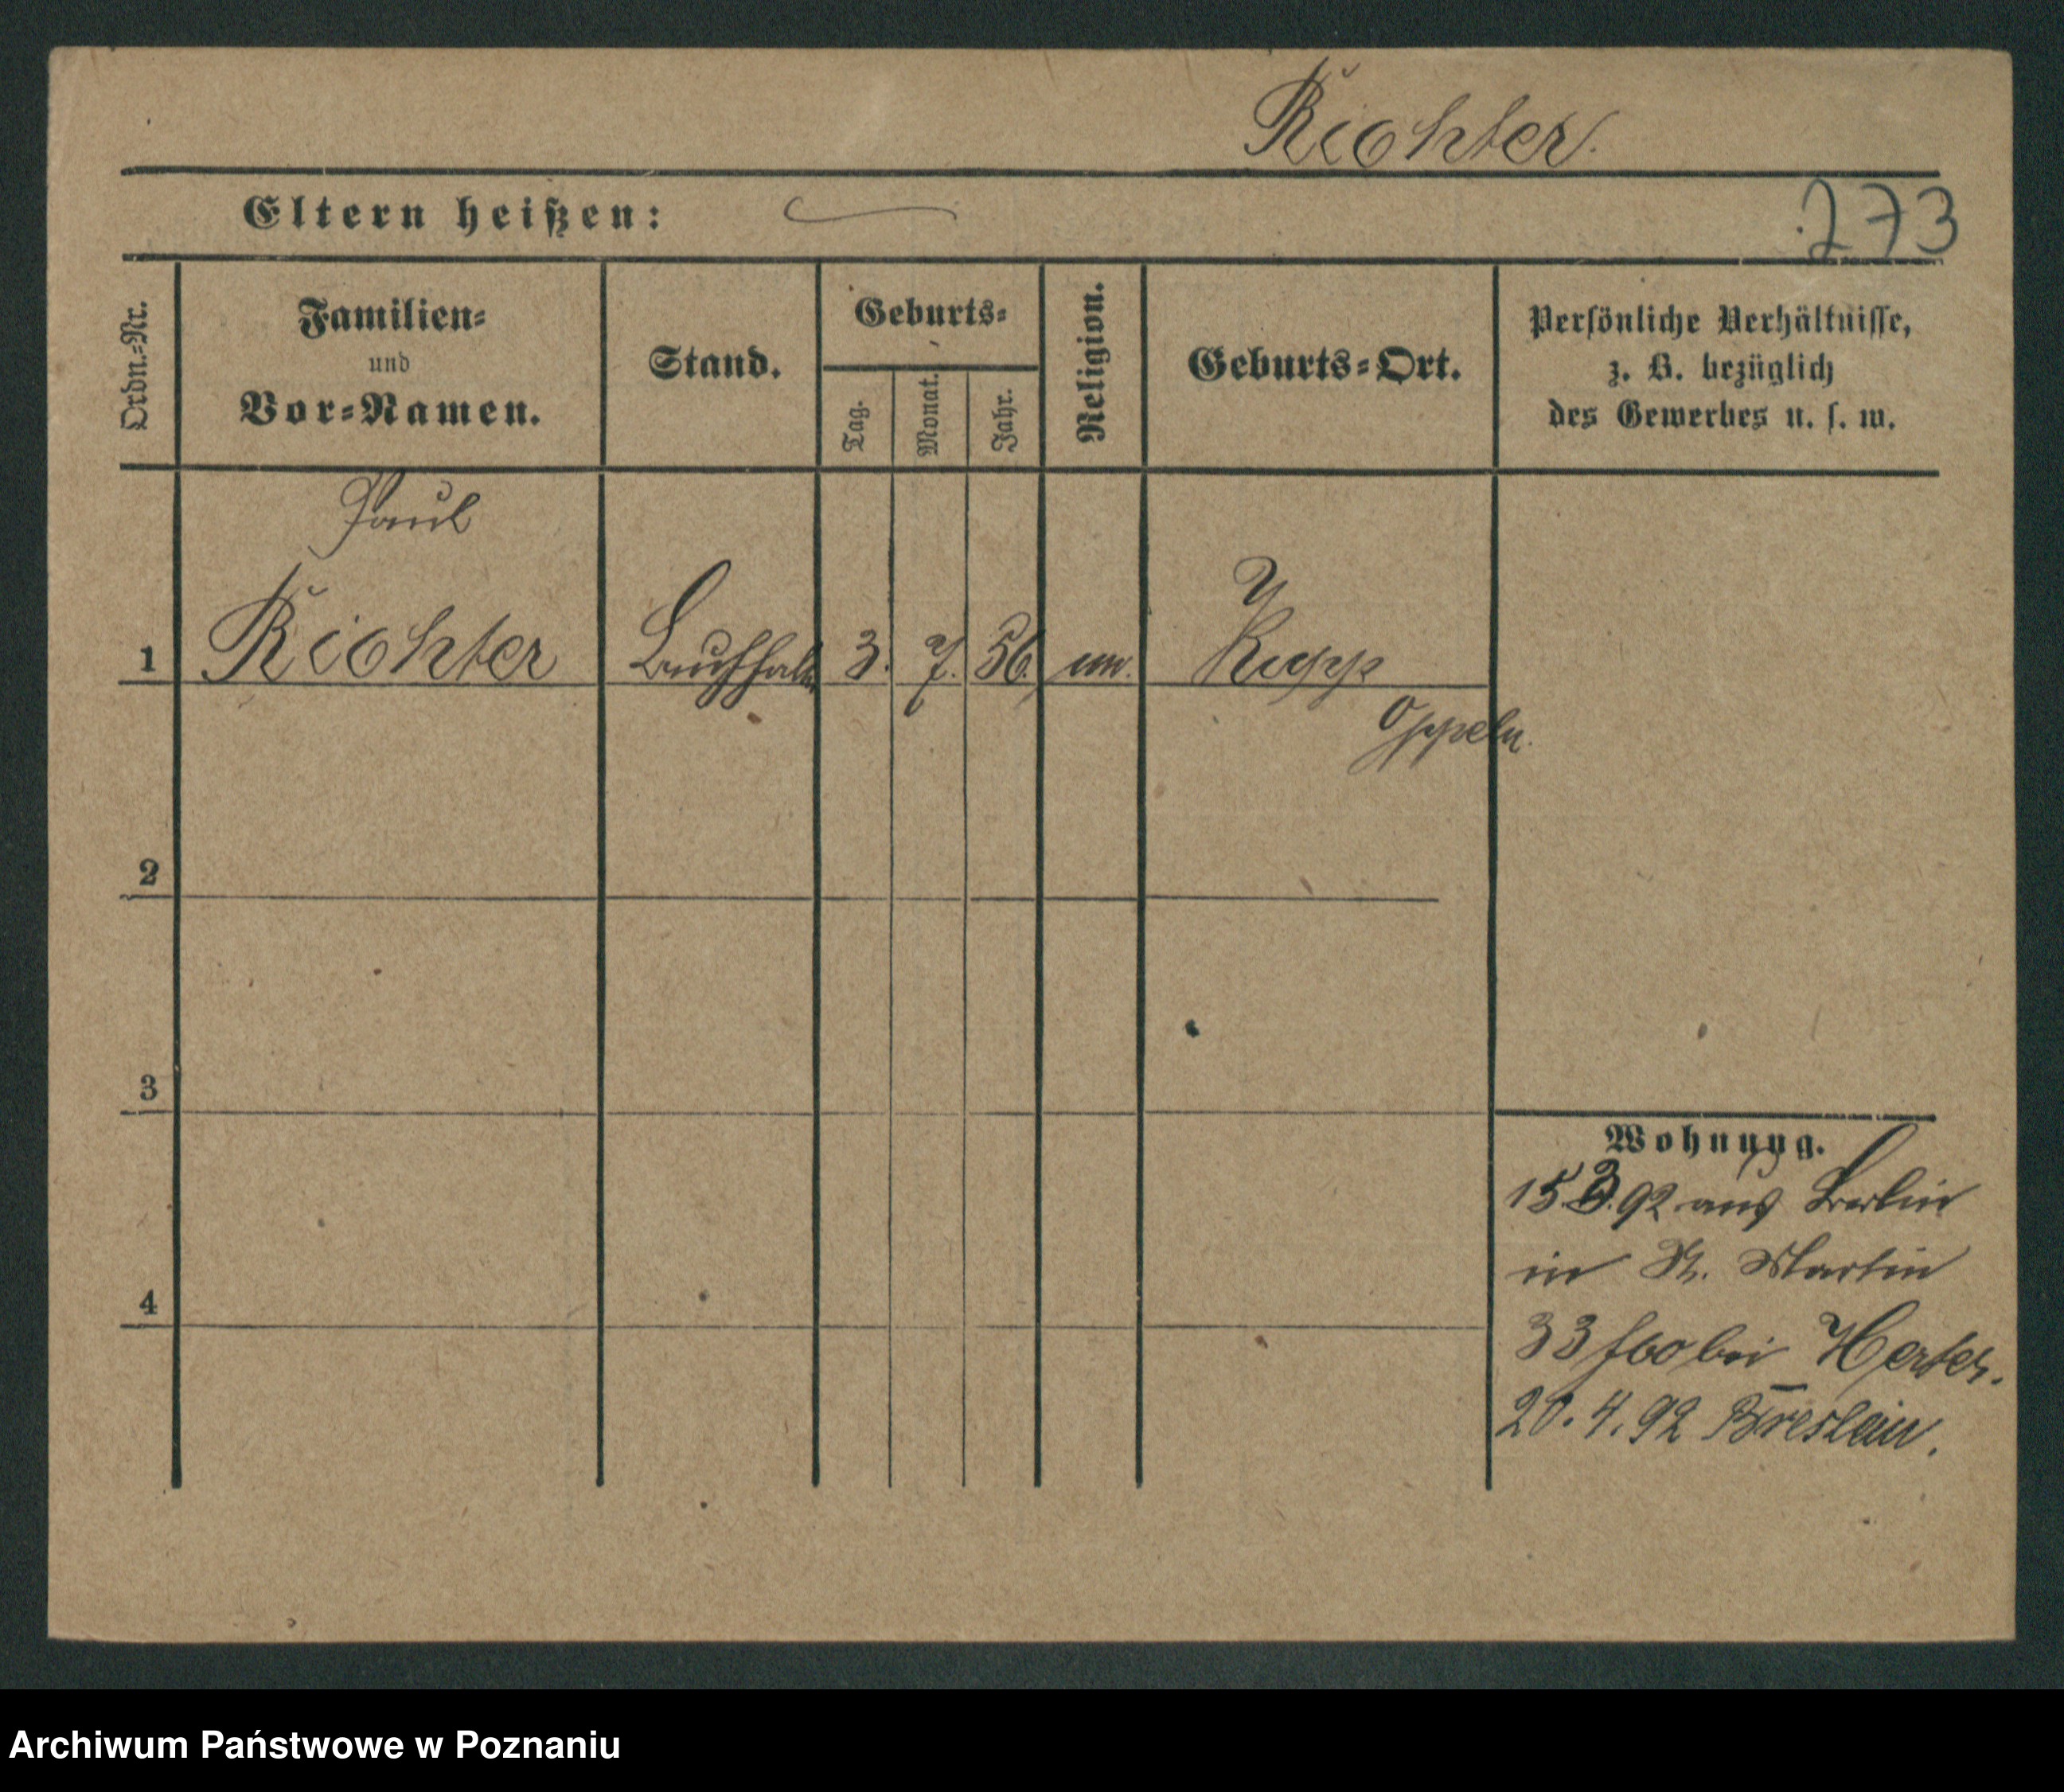 Richter.
Eltern heißen:
273
Ordn.-Nr.
Familien-
und
Vor-Namen.
Stand.
Geburts-
Tag.
Monat.
Jahr.
Religion.
Geburts-Ort.
Persönliche Verhältnisse,
z. B. bezüglich
des Gewerbes u. s. w.
Paul
1 Richter Buchhalter 3. 7. 56. Kupp
Oppeln.
2
3
4
Wohnung.
15.3.92 aus Berlin
in St. Martin
33 bei Herter.
20.4.92 Breslau.
Archiwum Państwowe w Poznaniu